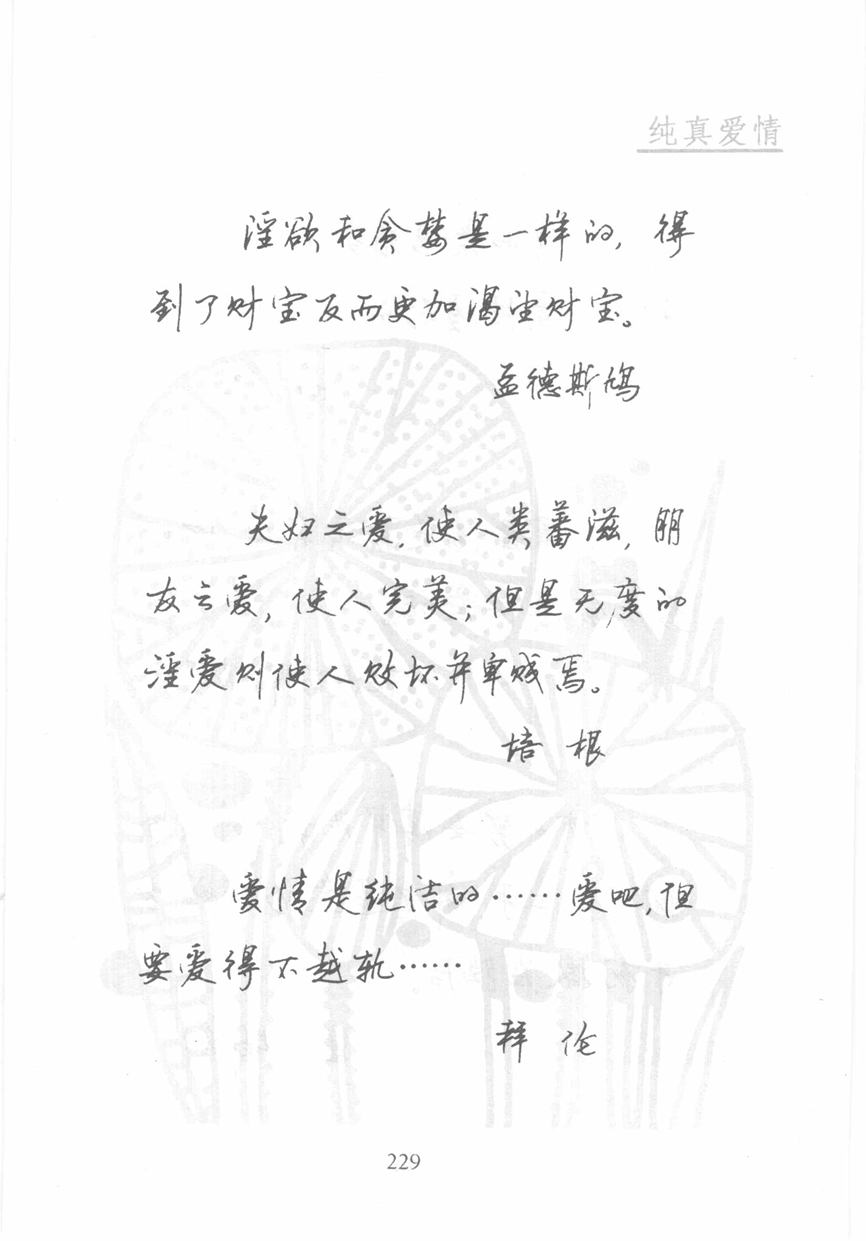 纯真爱情
淫欲和贪婪是一样的，得
到了财宝反而更加渴望财宝。
孟德斯鸠
夫妇之爱，使人类蕃滋，朋
友之爱，使人完美；但是无度的
淫爱则使人败坏并卑贱焉。
培根
爱情是纯洁的……爱吧，但
要爱得不越轨……
拜伦
229